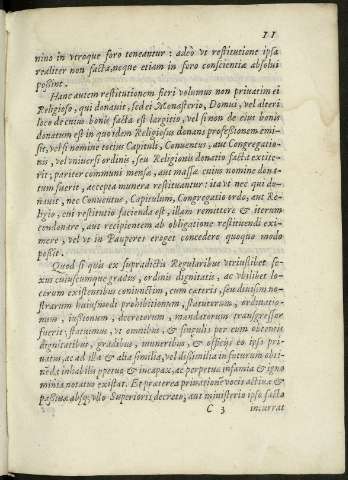 11
nino in vtroque foro teneantur: adeò vt restitutione ipsa
realiter non facta, neque etiam in foro conscientiæ absolui
possint.
Hanc autem restitutionem fieri volumus non priuatim ei
Religioso, qui donauit, sed ei Monasterio, Domui, vel alteri
loco de cuius bonis facta est largitio, vel si non de eius bonis
donatum est in quo idem Religiosus donans professionem emi-
sit, vel si nomine totius Capituli, Conuentus, aut Congregatio-
nis, vel vniuersi ordinis, seu Religionis donatio facta extite-
rit; pariter communi mensæ, aut massæ cuius nomine dona-
tum fuerit, accepta munera restituantur: ita vt nec qui do-
nauit, nec Conuentus, Capitulum, Congregatio ordo, aut Re-
ligio, cui restitutio facienda est, illam remittere & iterum
condonare, aut recipientem ab obligatione restituendi exi-
mere, vel vt in Pauperes eroget concedere quoquo modo
possit.
Quod si quis ex supradictis Regularibus vtriuslibet se-
xus cuiuscumque gradus, ordinis dignitatis, ac vbilibet lo-
corum existentibus coniunctim, cum cæteris, seu diuisim no-
strarum huiusmodi prohibitionum, statutorum, ordinatio-
num, iussionum, decretorum, mandatorum transgressor
fuerit; statuimus, vt omnibus & singulis per eum obtentis
dignitatibus, gradibus, muneribus, & officijs eo ipso pri-
uatus, ac ad illa & alia similia, vel dissimilia in futurum obti-
nēda inhabilis ppetuò & incapax, ac perpetua infamia & igno
minia notatus existat. Et præterea priuationē vocis actiuæ &
passiuæ absq; vllo Superioris decreto, aut ministerio ipso facto
C 3 incurrat